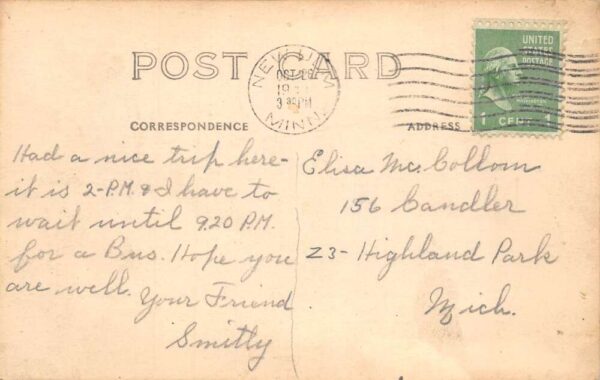 POST CARD
NEW ULM
OCT 26
3 30 PM
MINN.
UNITED
STATES
POSTAGE
WASHINGTON
1 CENT 1
CORRESPONDENCE
ADDRESS
Had a nice trip here-
it is 2-P.M. & I have to
wait until 9.20 P.M.
for a Bus. Hope you
are well.
Your Friend
Smitty
Elisa Mc. Collom
156 Candler
23- Highland Park
Mich.